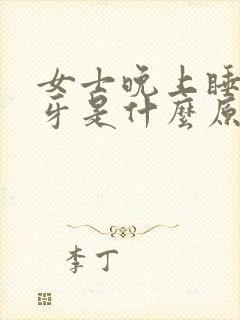 女士晚上睡
牙是什麼原
李丁